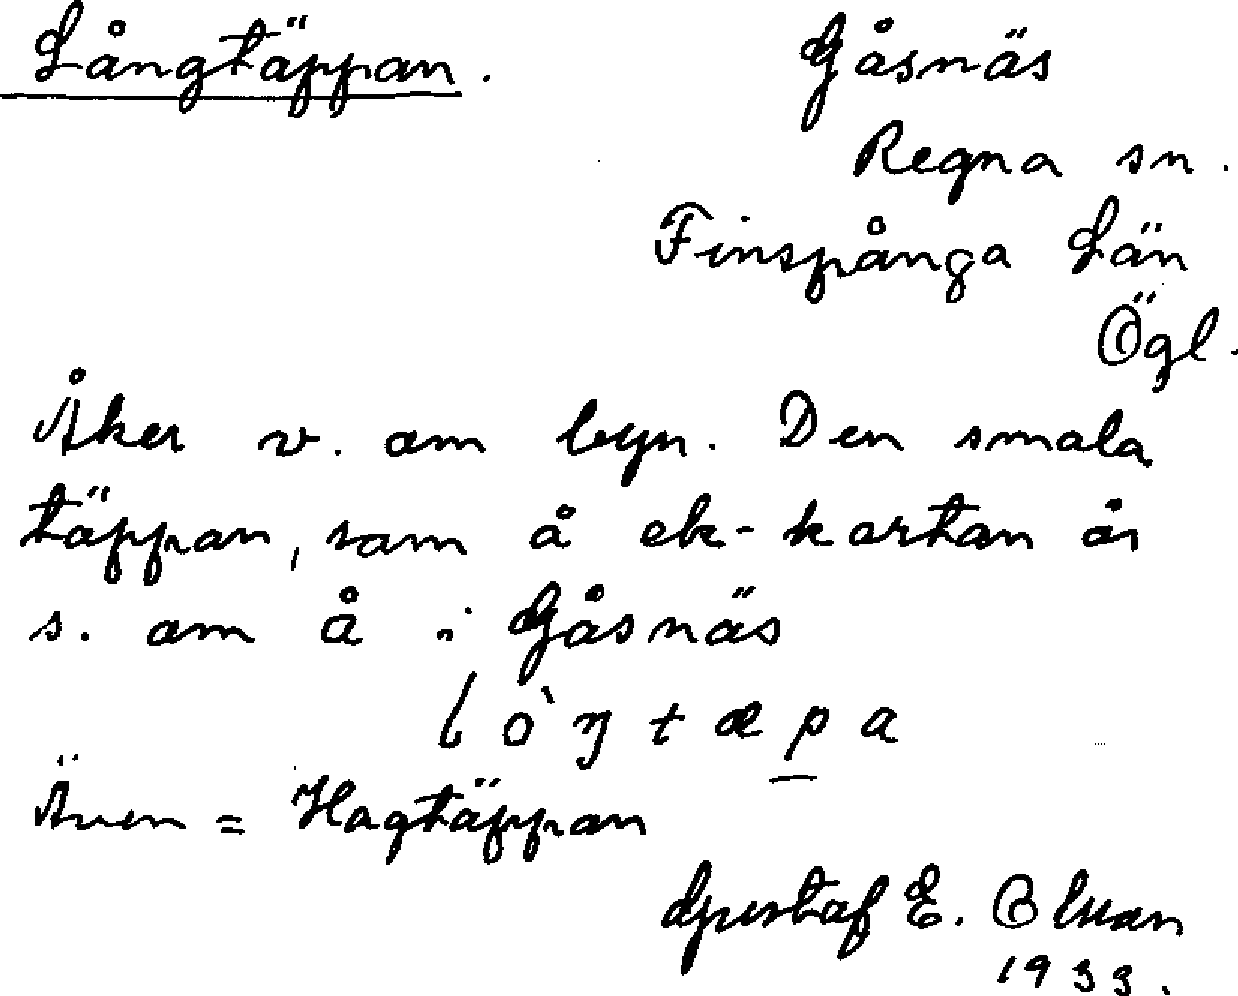 Långtäppan.
Gåsnäs
Regna sn.
Finspånga Län
Ögl.
Åker v. om byn. Den smala
täppan, som å ek-kartan är
s. om Å i Gåsnäs
lòŋtæpa
Även = Hagtäppan
Gustaf E. Olsson
1933.